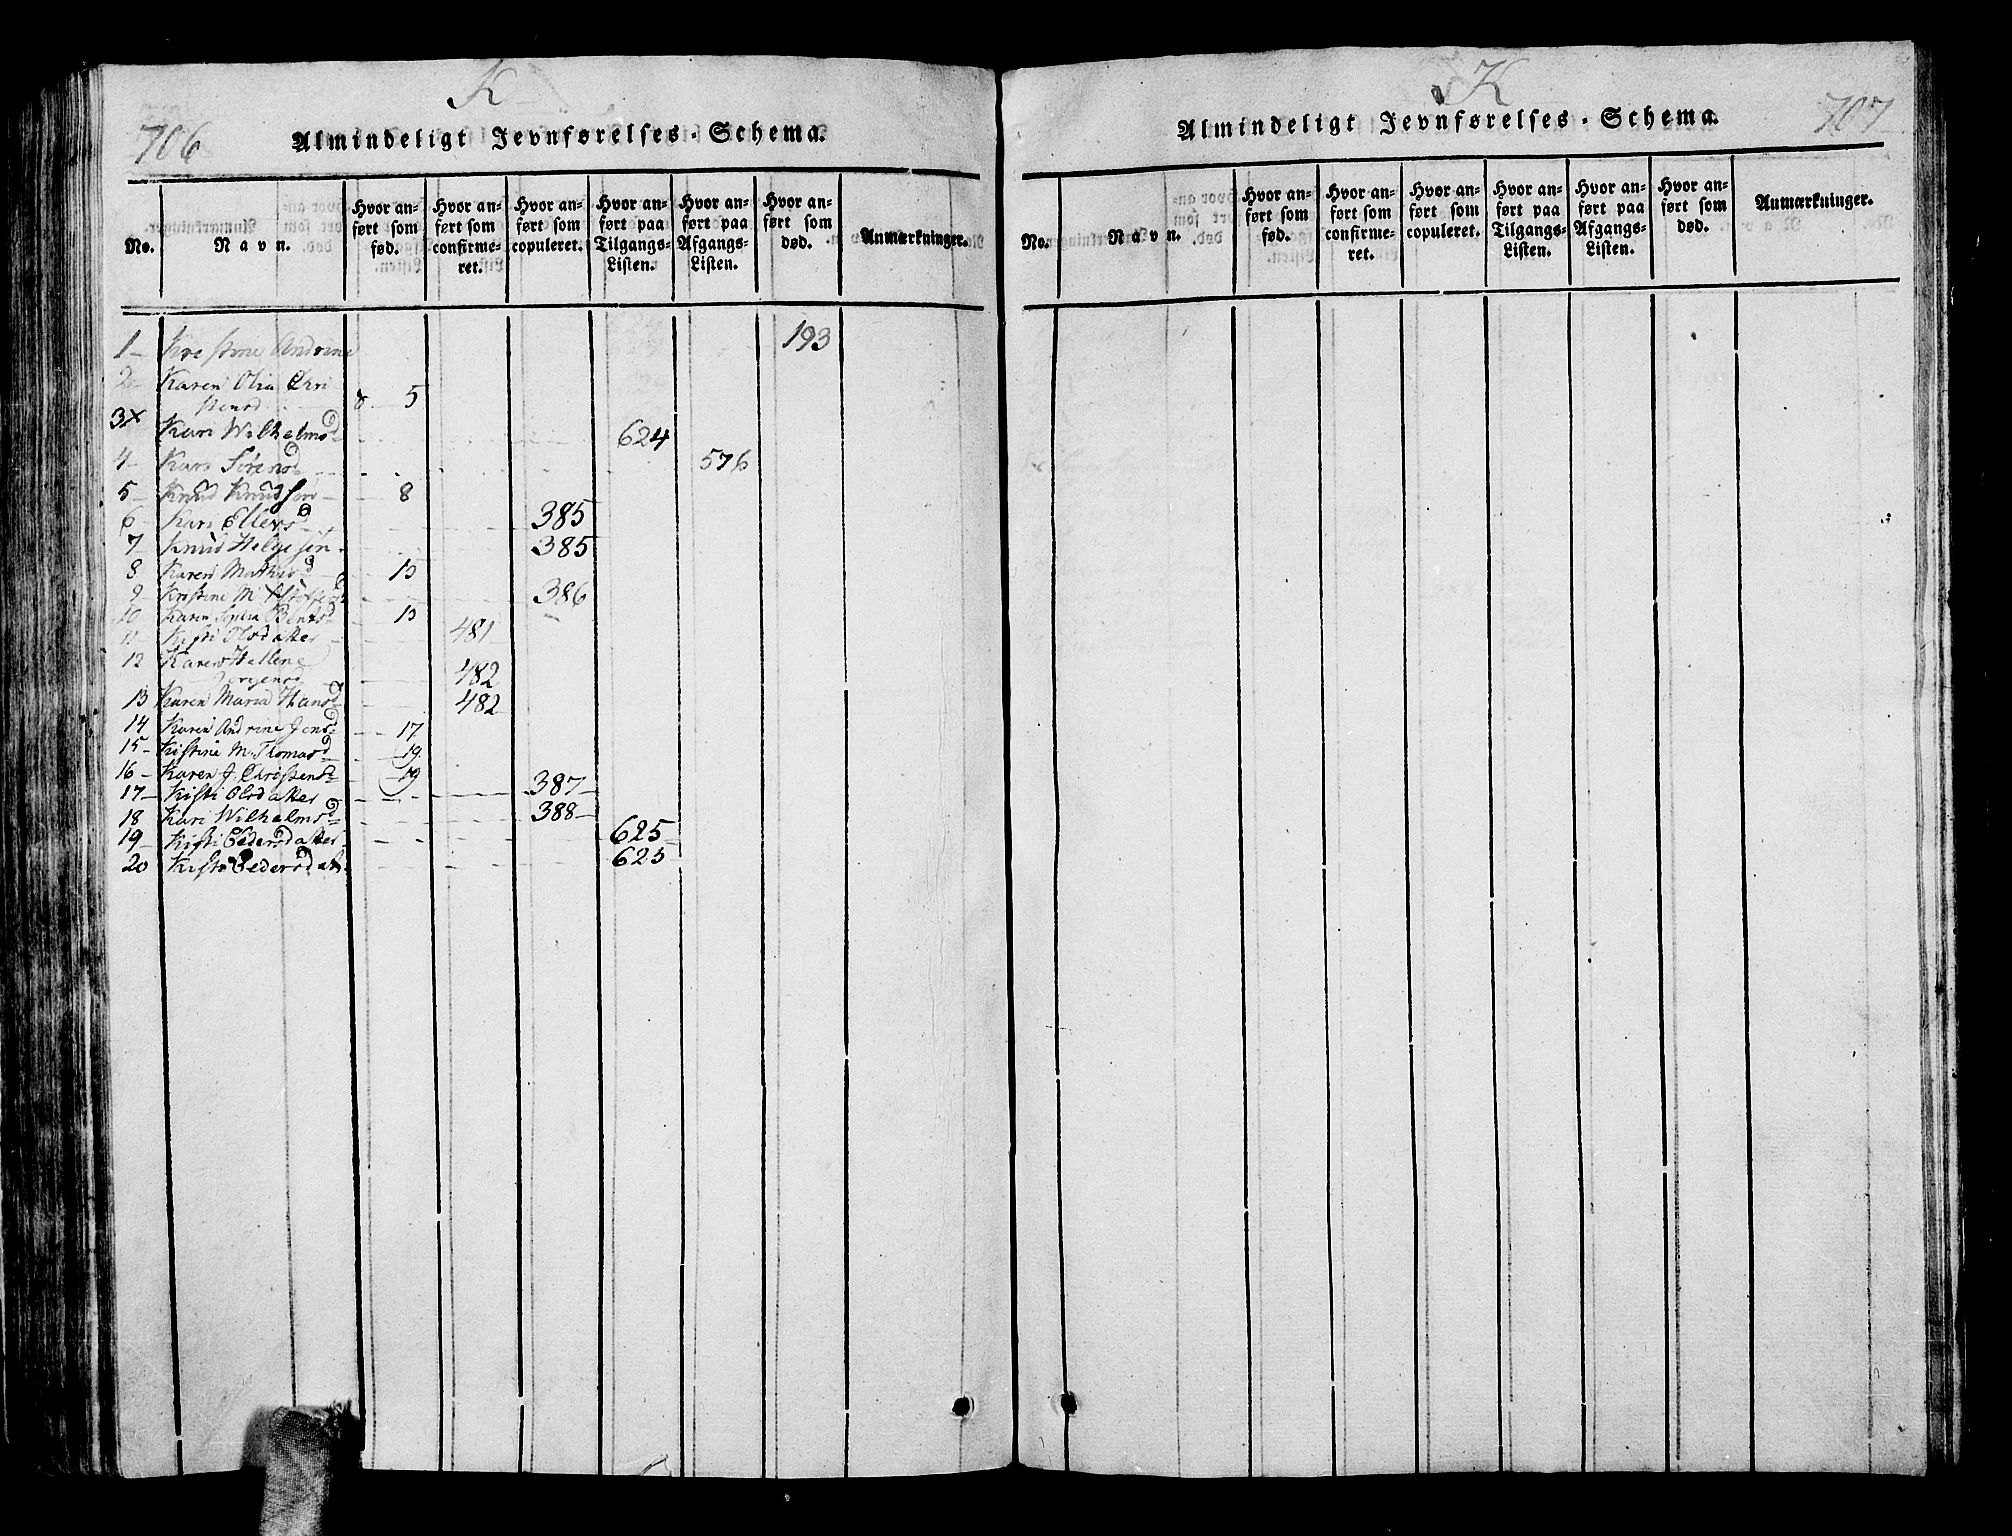 K
706
Almindeligt Jevnførelses-Schema.
No.
Navn.
Hvor an-
ført som
fød.
Hvor an-
ført som
confirme-
ret.
Hvor an-
ført som
copuleret.
Hvor an-
ført paa
Tilgangs-
Listen.
Hvor an-
ført paa
Afgangs-
Listen.
Hvor an-
ført som
død.
Anmærkninger.
1 Andrine 193
2 Karen Olia Chri
stensd 5
3x Kari Wilhelmsd 624
4 Kari Sørensd 576
5 Knud Knudsøn 8
6 Kari Ellevsd 385
7 Knud Helgesøn 385
8 Karen Mathisd 15
9 Kristine M 386
10 Karen Bentsd 15
11 Kisti Olsdatter 481
12 Karen Hellene
Jørgensd 482
13 Karen Maria Hansd 482
14 Karen Andrine Jensd 17
15 Kistine M. Thomasd 19
16 Karen J. Christensd 19
17 Kisti Olsdatter 387
18 Kari Wilhelmsd 388
19 Kisti Pedersdatter 625
20 Kisti Pedersdatr 625
K
707
Almindeligt Jevnførelses-Schema.
No.
Navn.
Hvor an-
ført som
fød.
Hvor an-
ført som
confirme-
ret.
Hvor an-
ført som
copuleret.
Hvor an-
ført paa
Tilgangs-
Listen.
Hvor an-
ført paa
Afgangs-
Listen.
Hvor an-
ført som
død.
Anmærkninger.